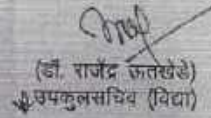 (डॉ. राजेंद्र ऊतखेडे)
उपकुलसचिव (विद्या)